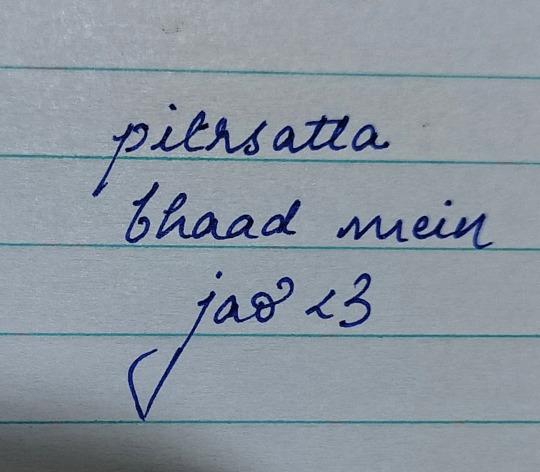 pitrsatta
bhaad mein
jao <3